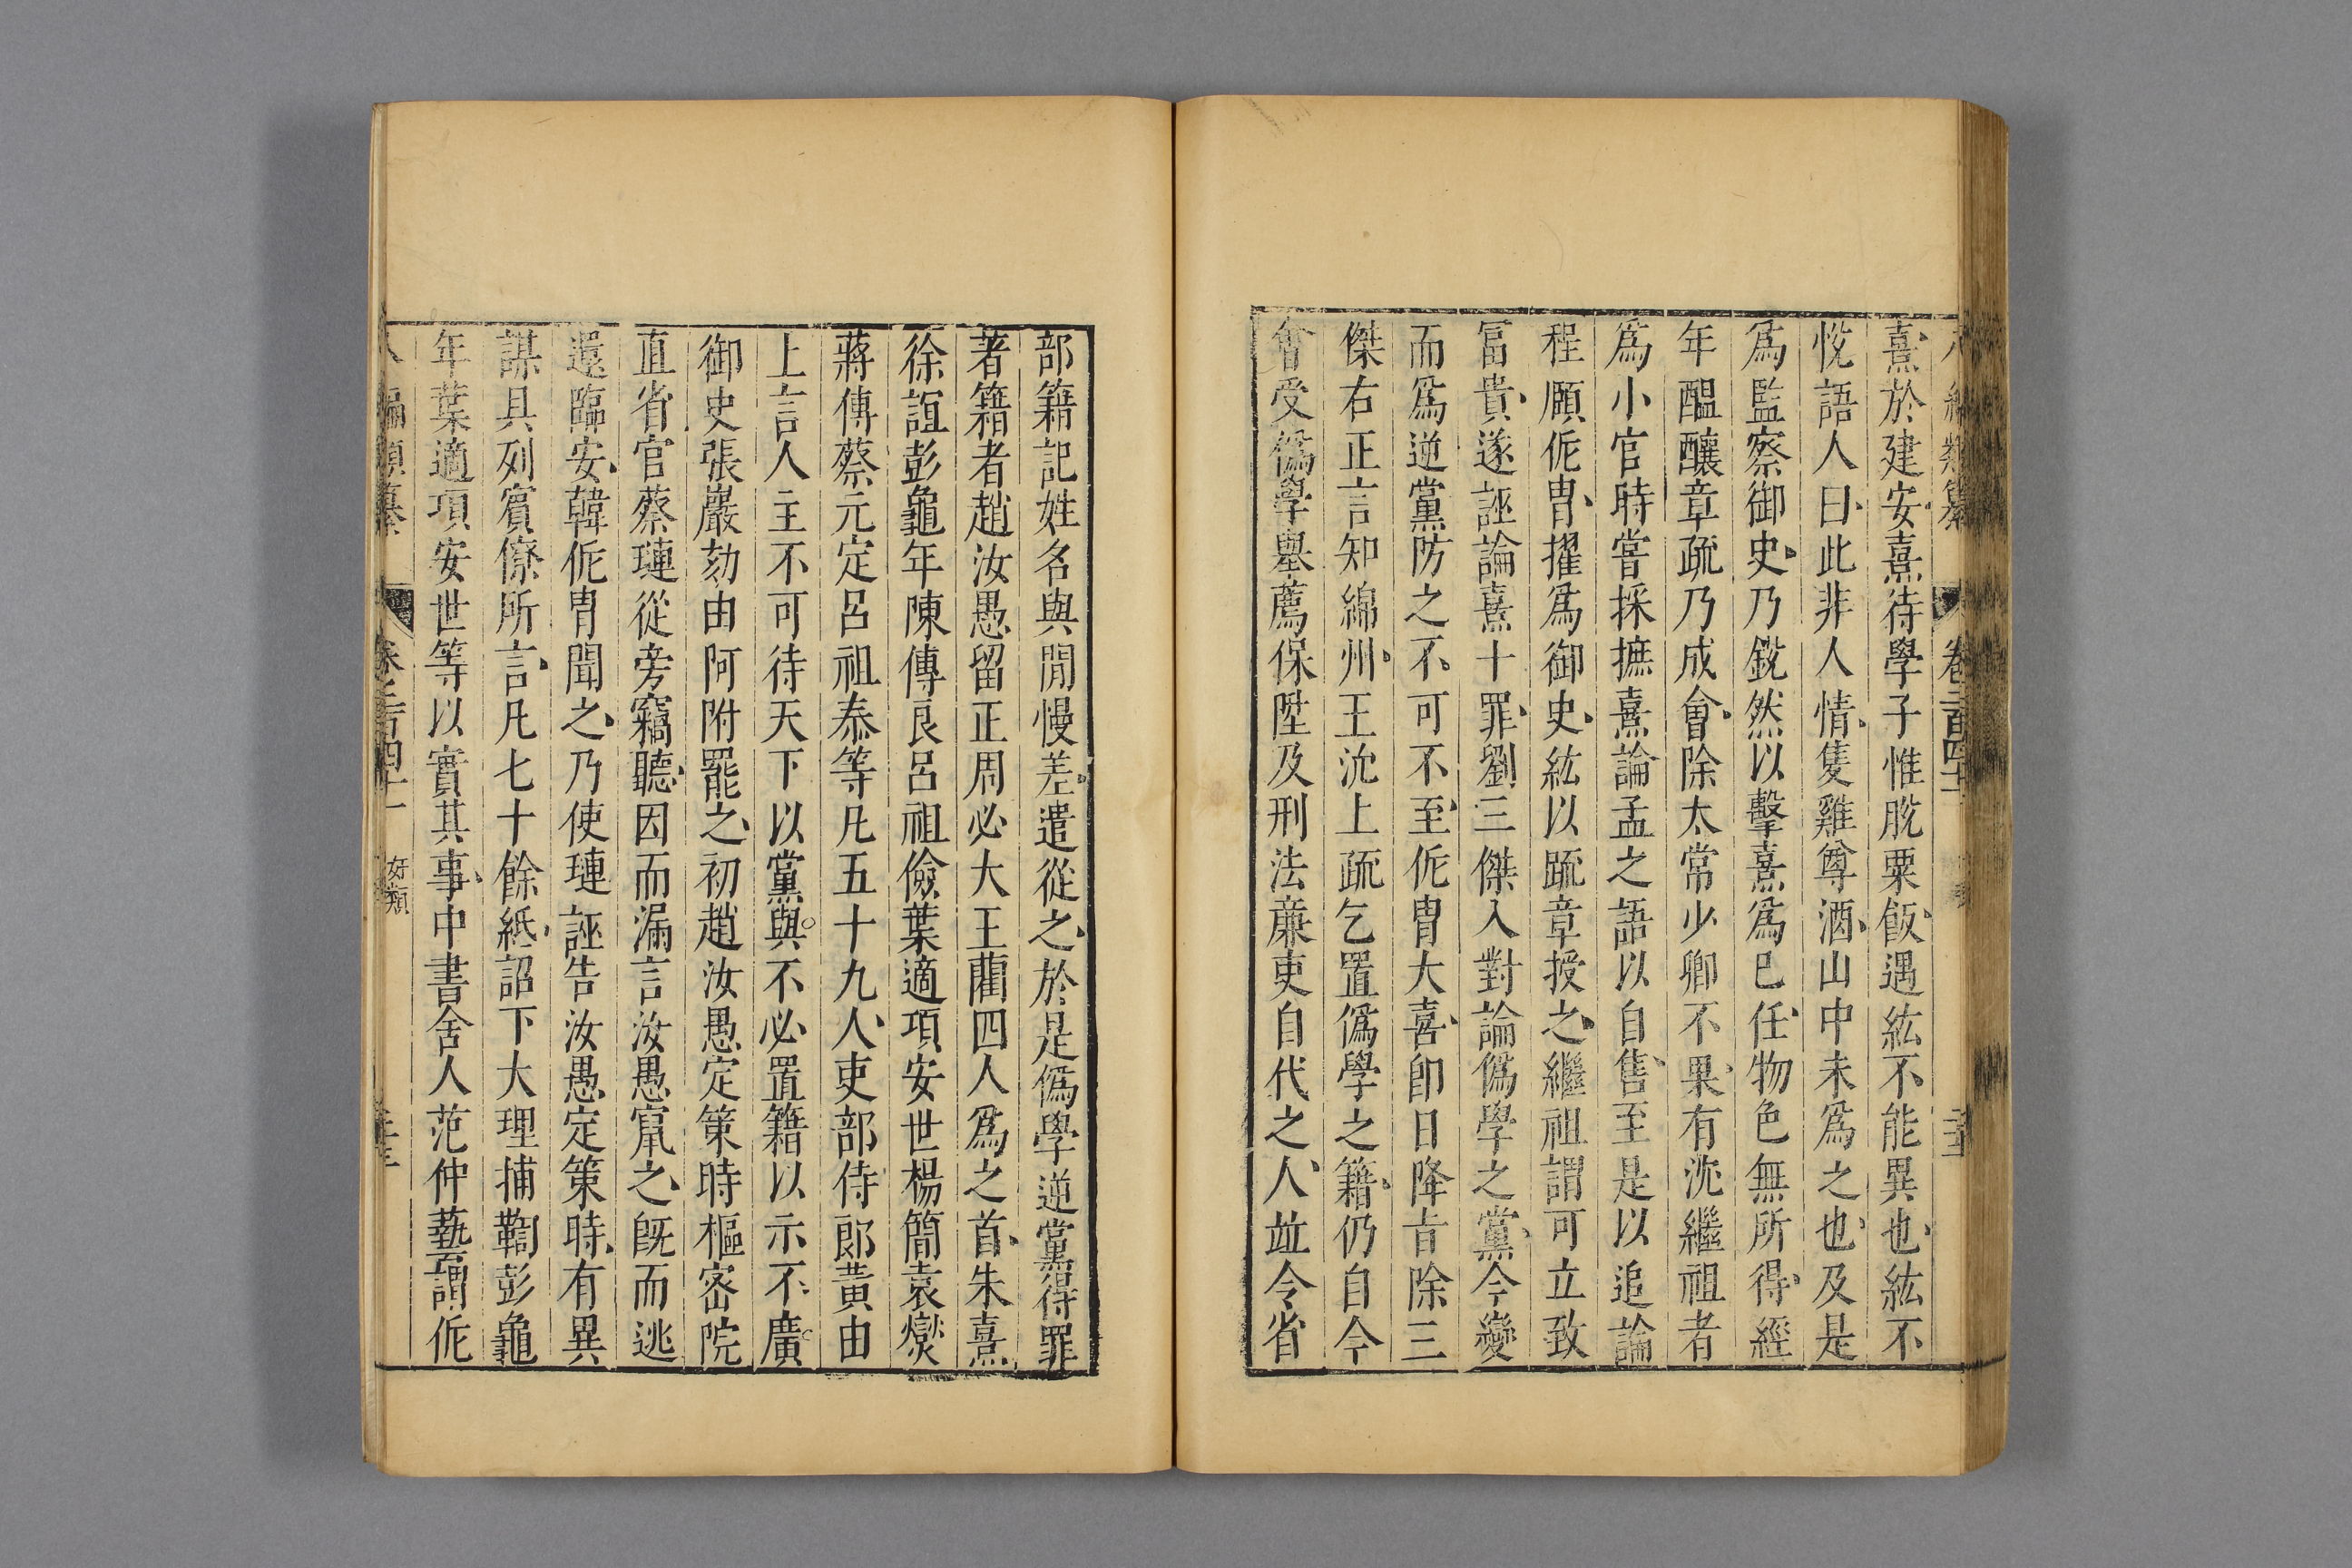 熹於建安熹待學子惟脫粟飯遇紘不能異也紘不
悅語人曰此非人情隻雞尊酒山中未爲之也及是
爲監察御史乃銳然以擊熹爲己任物色無所得經
年醞釀章疏乃成會除太常少卿不果有沈繼祖者
爲小官時嘗採摭熹論孟之語以自售至是以追論
程頤侂冑擢爲御史紘以䟽章授之繼祖謂可立致
冨貴遂誣論熹十罪劉三傑入對論僞學之黨今變
而爲逆黨防之不可不至侂冑大喜卽日降旨除三
傑右正言知綿州王沇上疏乞置僞學之籍仍自今
會受僞學舉薦保陞及刑法廉吏自代之人並令省
部籍記姓名與閒慢差遣從之於是僞學逆黨得罪
著籍者趙汝愚留正周必大王藺四人爲之首朱熹
徐誼彭龜年陳傅良呂祖儉葉適項安世楊簡袁燮
蔣傅蔡元定呂祖泰等凡五十九人吏部侍郎黃由
上言人主不可待天下以黨與不必置籍以示不廣
御史張巖劾由阿附罷之初趙汝愚定策時樞密院
直省官蔡璉從旁竊聽因而漏言汝愚竄之旣而逃
還臨安韓侂冑聞之乃使璉誣告汝愚定策時有異
謀具列賓僚所言凡七十餘紙詔下大理捕鞫彭龜
年葉適項安世等以實其事中書舍人范仲藝謂侂
編類纂 卷二百四十一 奸類